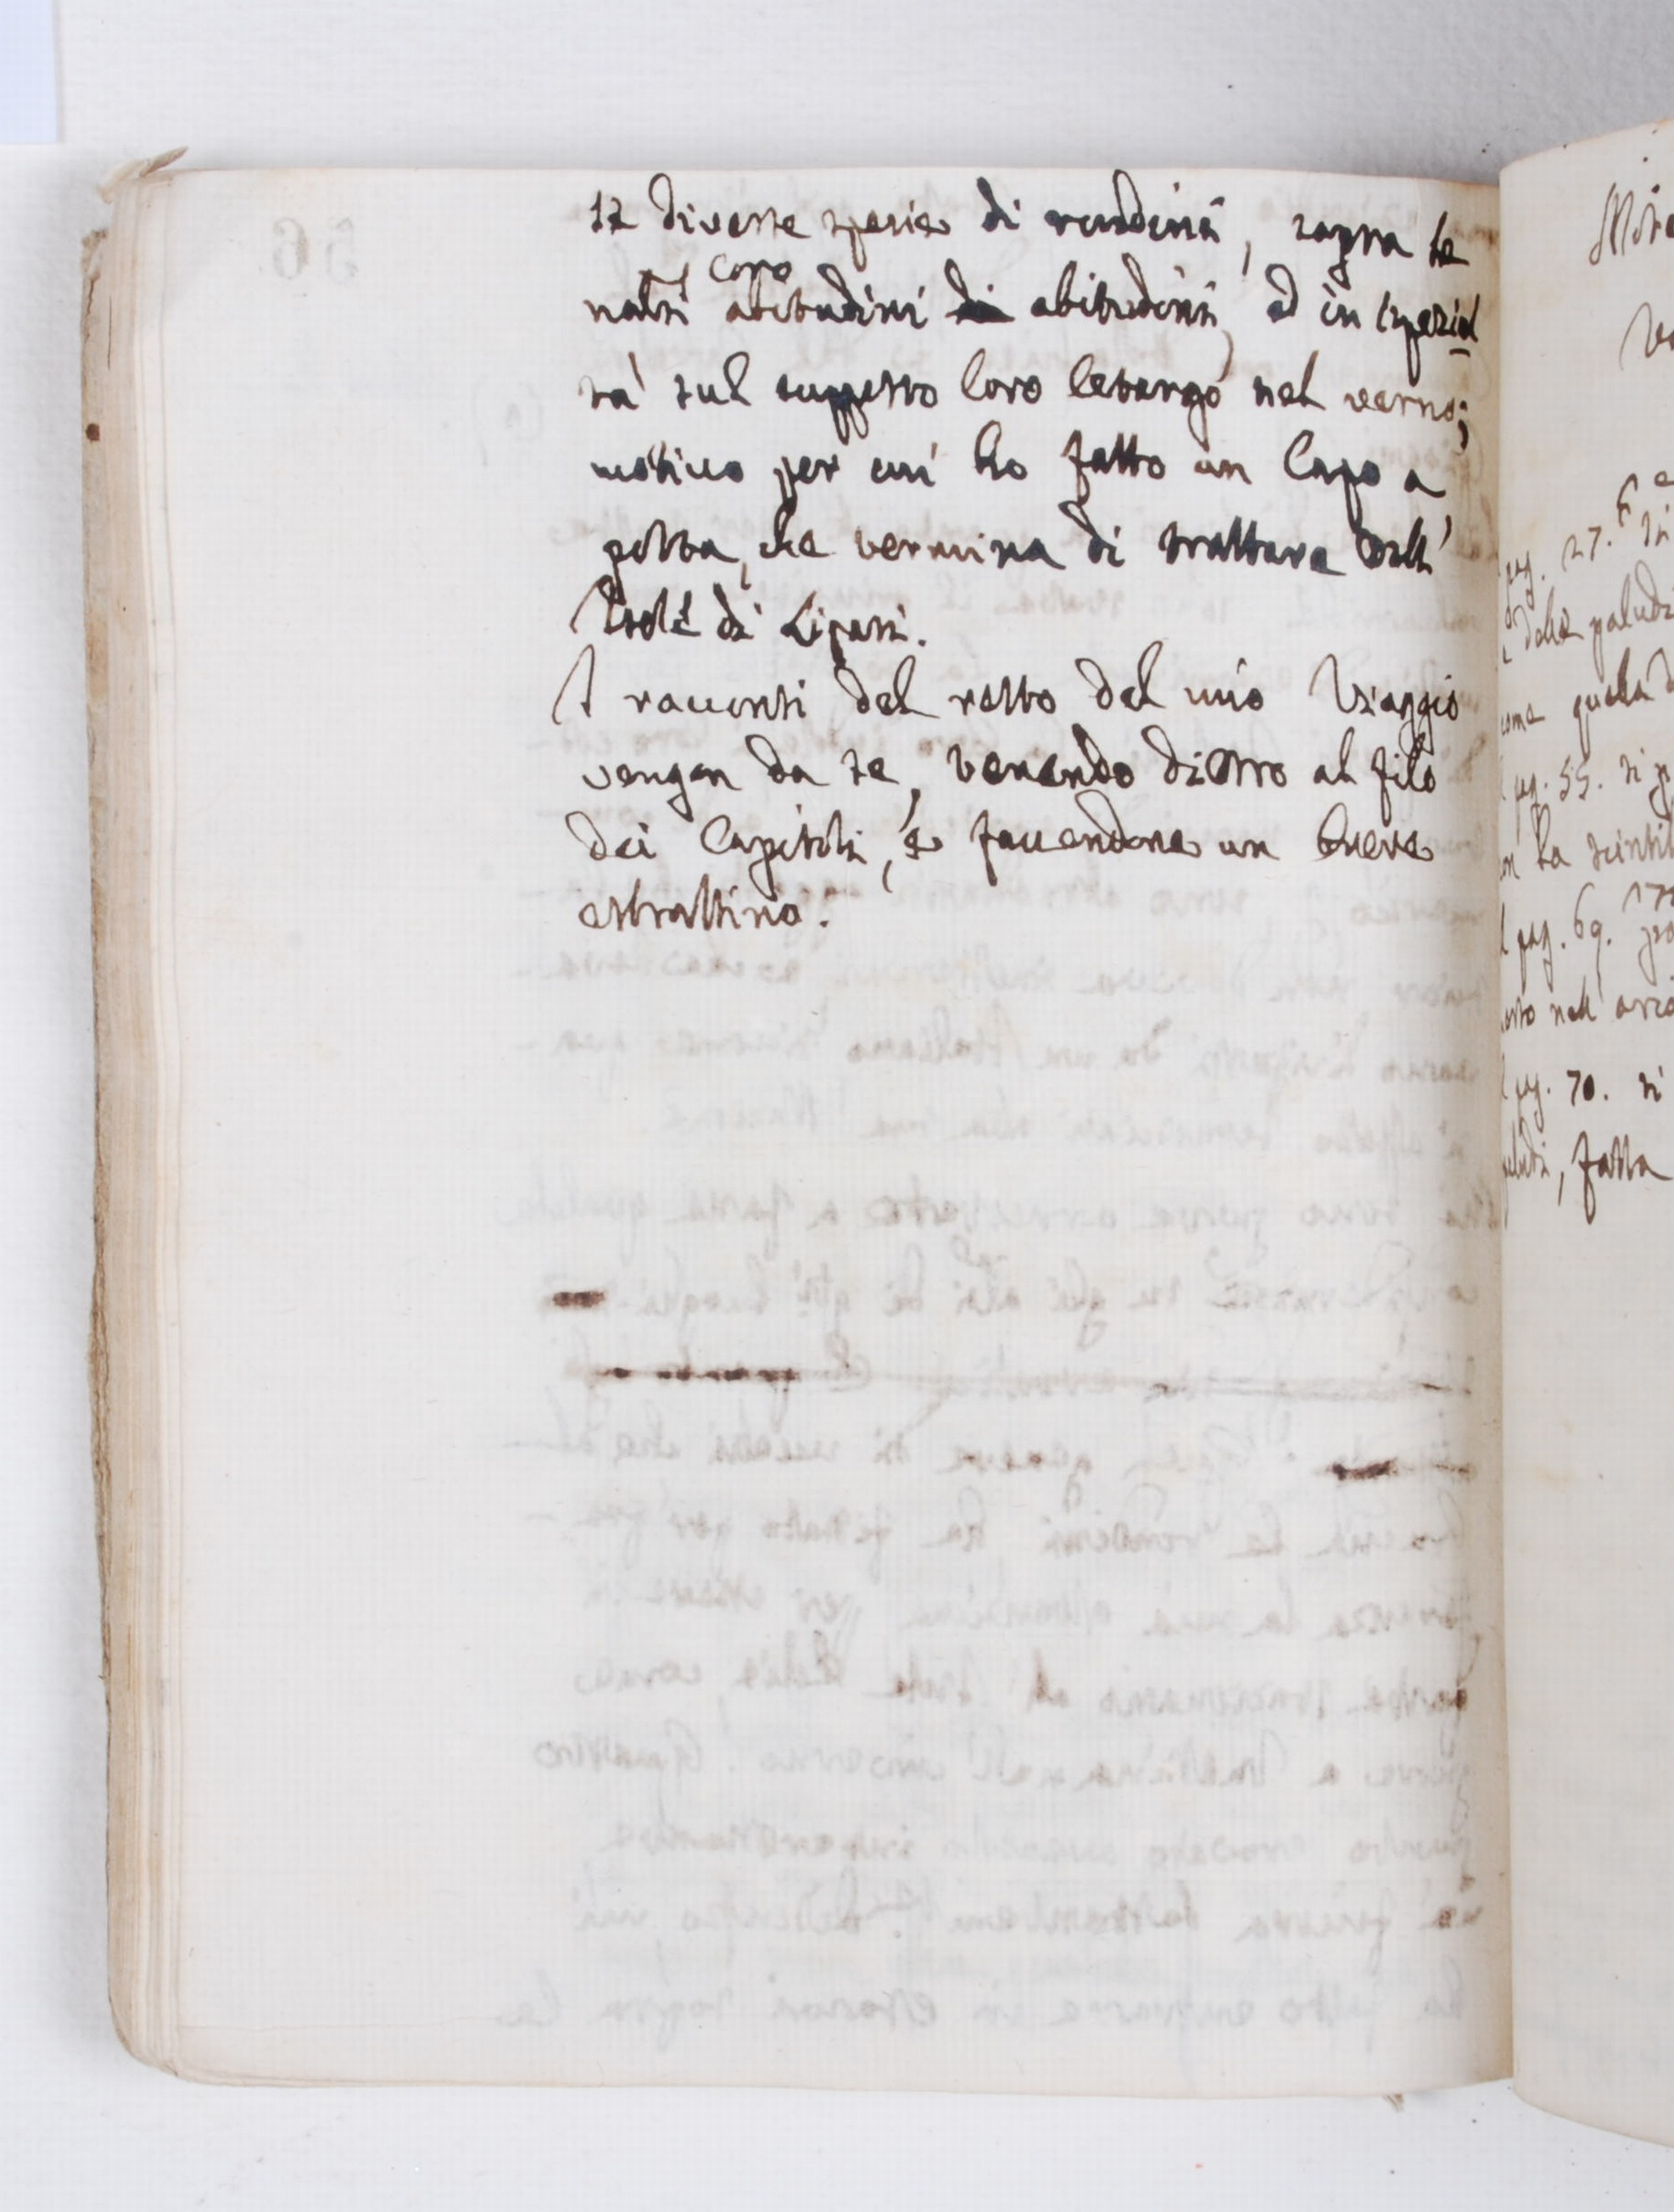 se diverse spezie di rondini, sopra le
natⁱⁱ loro abitudini di abitudini, ed in ispezial
tà sul supposto loro letargo nel verno;
motivo per cui ho fatto un Capo a
posta, che termina di trattare dell'
Isole di Lipari.
I racconti del resto del mio Viaggio
vengon da se, tenendo dietro al filo
dei Capitoli, e facendone un breve
estrattino.
pag. 27. 6
delle palud
come quella d
pag. 55. si p
la scintil
pag. 69.
nell'
pag. 70. si
, fatta